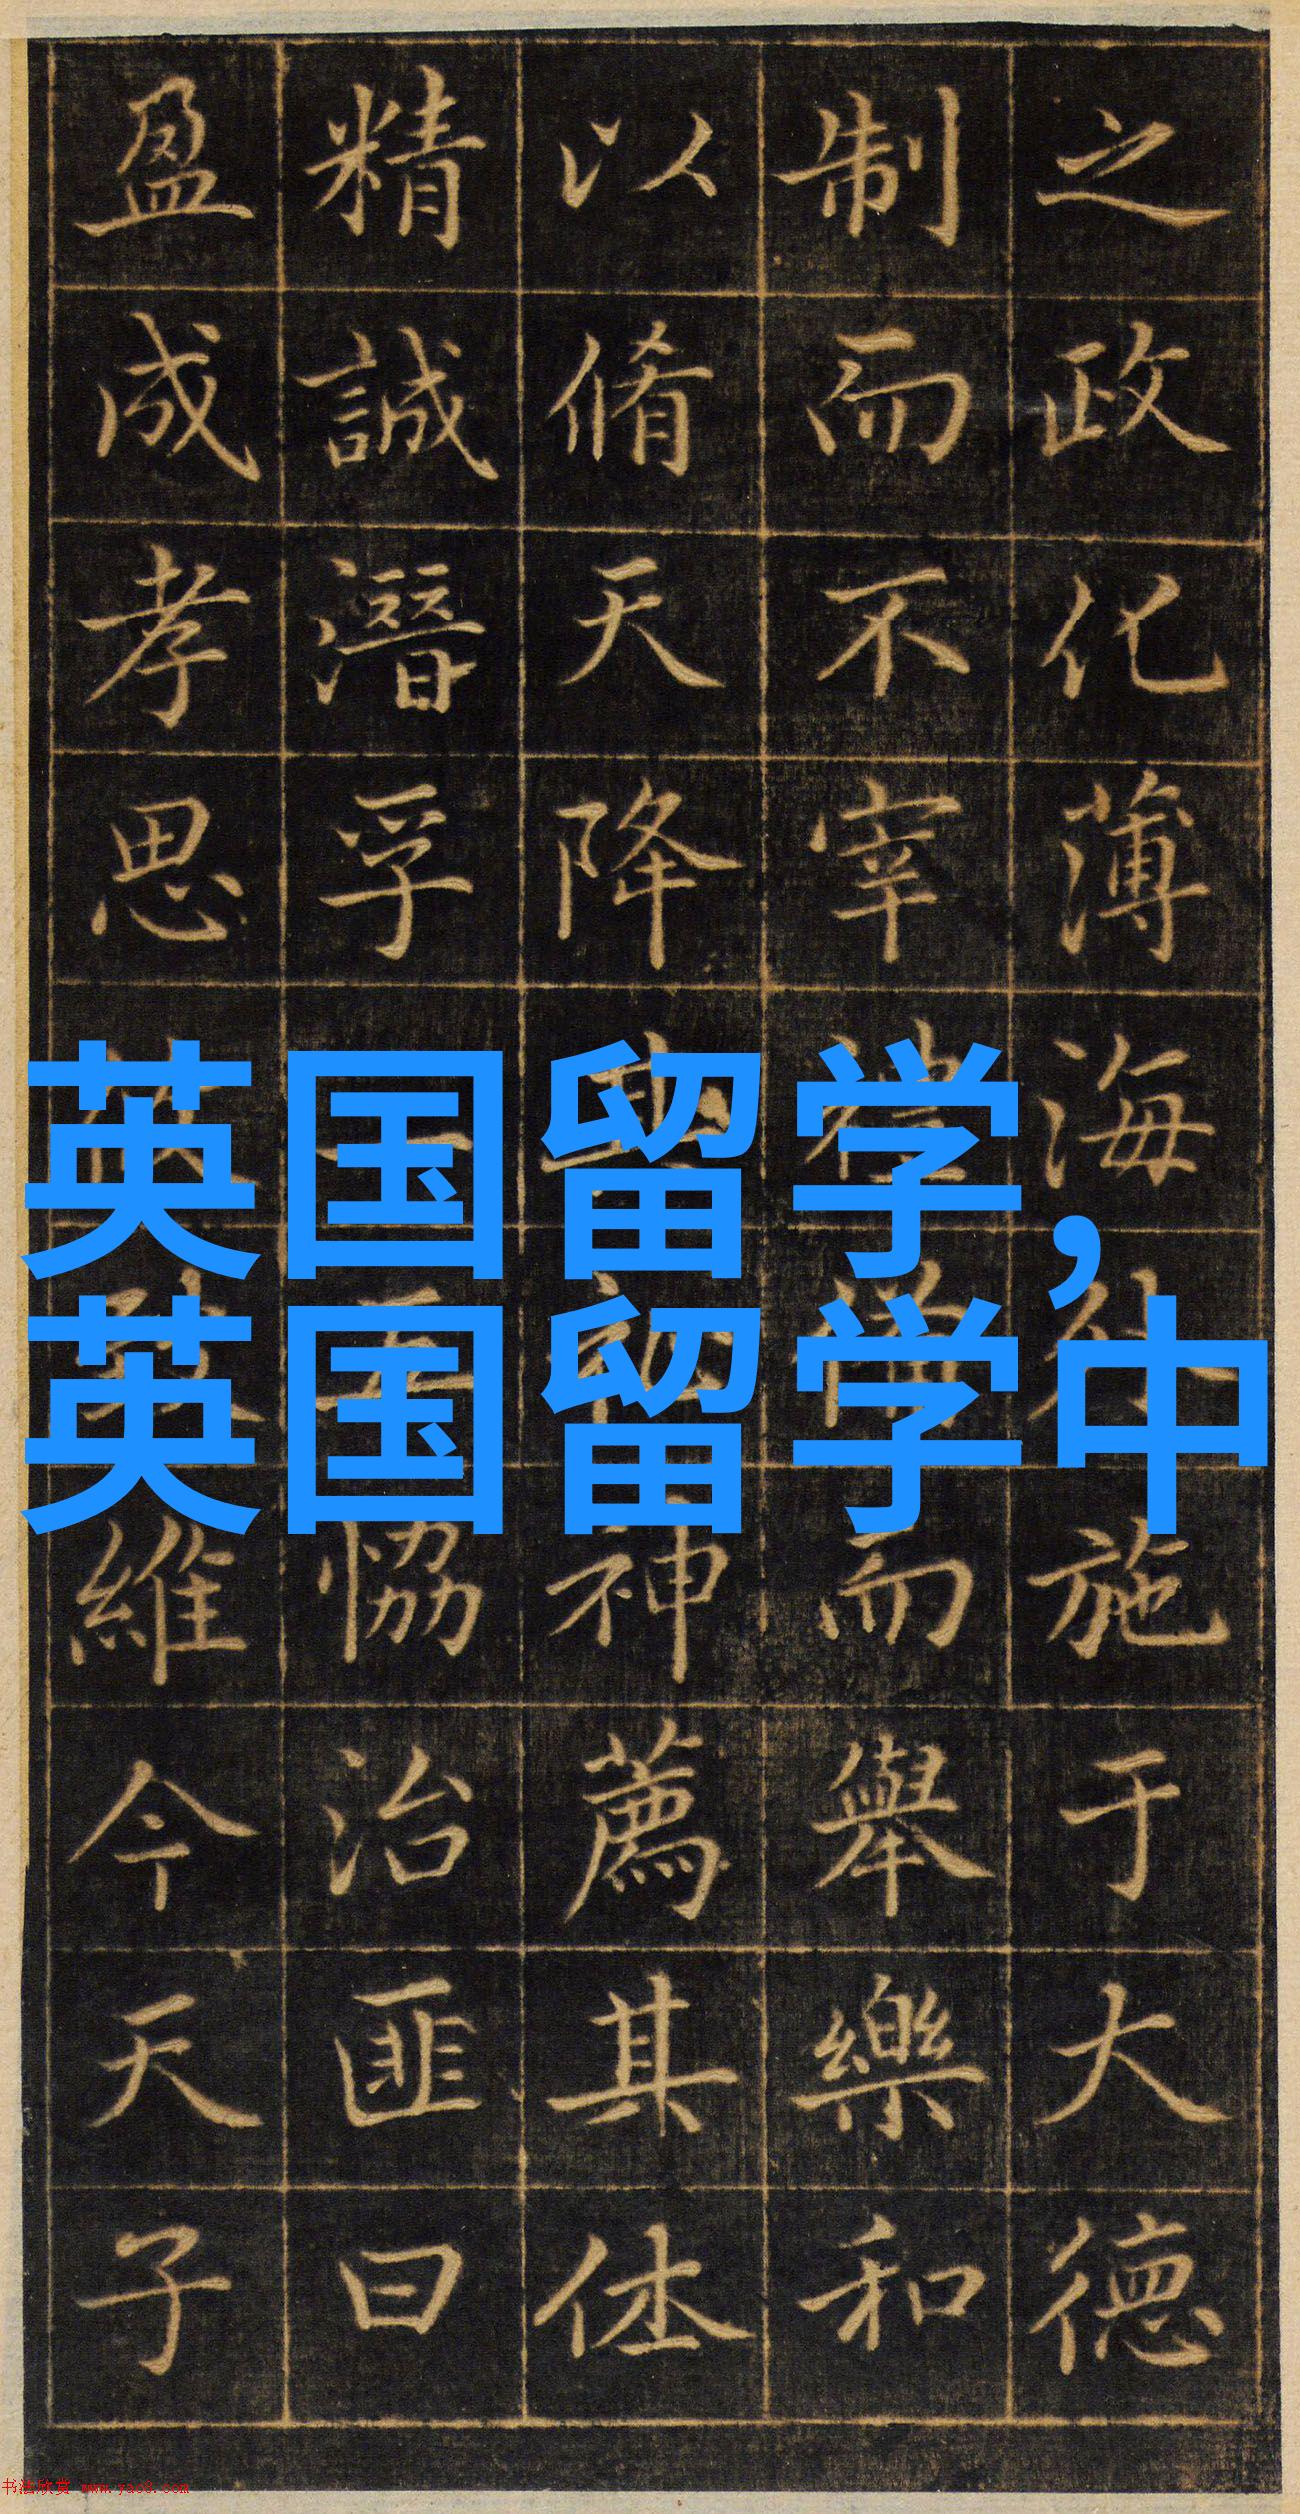 之政化薄海施于大德
制而不宰而舉樂和
以脩天降神薦其休
精誠潛孚恊治匪曰
盈成孝思維今天子
英国留学,
英国留学中
书法欣赏 www.yac8.com